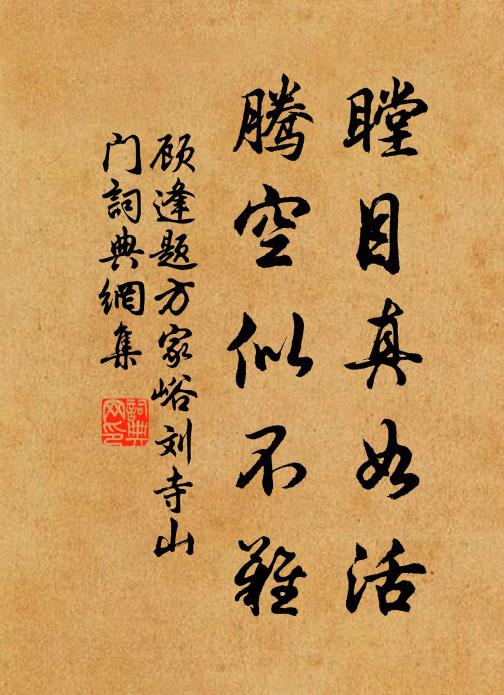 瞠目真如活
腾空似不难
顾逢题方家峪刘寺山
门词典网集
詞典網印